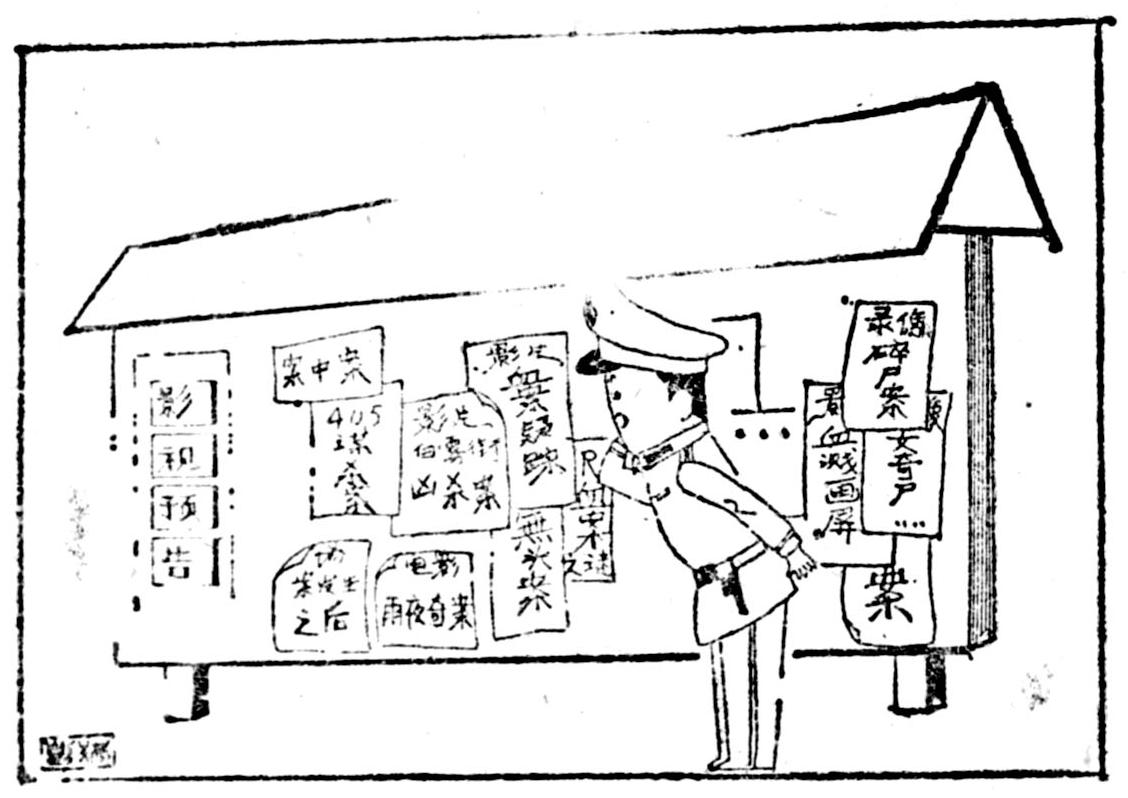 影
视
预
告
案中案
405
谋
杀
案
影片
伯雾街
凶杀案
影片
疑
踪
無
头
案
血
案
之谜
案发生
之后
电影
雨夜奇案
录像
碎
尸
案
血
溅
画
屏
女
奇
尸
....
案